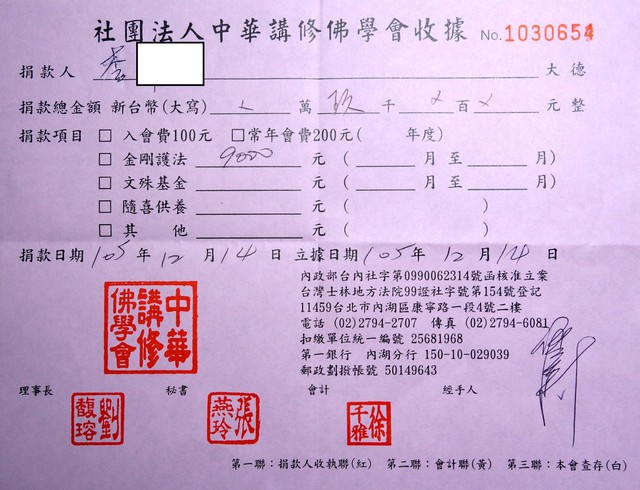 社團法人中華講修佛學會收據 No.1030654
捐款人 李 大德
捐款總金額 新台幣(大寫) 萬 玖 千 百 元整
捐款項目 □ 入會費100元 □常年會費200元( 年度)
□ 金剛護法 9000 元 ( 月至 月)
□ 文殊基金 元 ( 月至 月)
□ 隨喜供養 元 ( )
□ 其 他 元 ( )
捐款日期 105 年 12 月 14 日 立據日期 105 年 12 月 14 日
內政部台內社字第0990062314號函核准立案
台灣士林地方法院99證社字號第154號登記
11459台北市內湖區康寧路一段4號二樓
電話 (02)2794-2707 傳真 (02)2794-6081
扣繳單位統一編號 25681968
第一銀行 內湖分行 150-10-029039
郵政劃撥帳號 50149643
中華講修佛學會
理事長 秘書 會計 經手人
劉馥瑢 張燕玲 徐千雅
第一聯：捐款人收執聯(紅) 第二聯：會計聯(黃) 第三聯：本會查存(白)